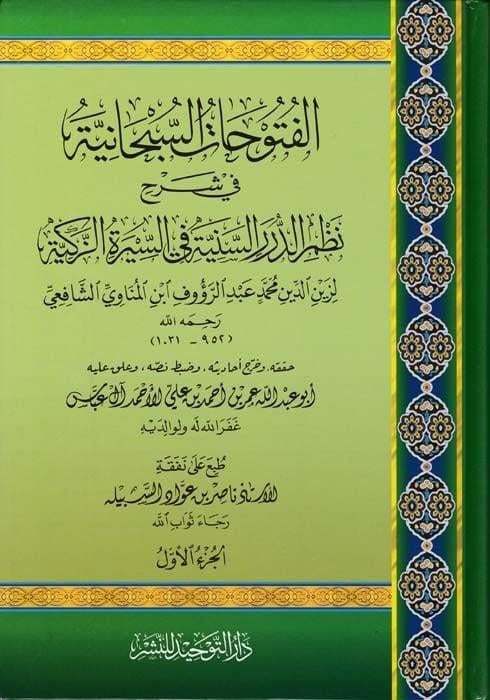 الفُتُوحَاتُ السُّبْحَانِيَّةُ
في شَرْحِ
نَظْمِ الدُّرَرِ السَّنِيَّةِ فِي السِّيرَةِ الزَّكِيَّةِ
لِزَيْنِ الدِّينِ مُحَمَّد عَبْدِ الرَّؤُوفِ ابْنِ المُنَاوِيِّ الشَّافِعِيِّ
رَحِمَه الله
(٩٥٢ - ١٠٣١)
حققه، وخرّج أحاديثه، وضبط نصّه، وعلق عليه
أبو عبد الله عمر بن أحمد بن علي الأحمد آل عباس
غَفَرَ اللهُ لَه وَلِوالدِيْهِ
طُبِعَ عَلَى نَفَقَةِ
الأستاذ ناصر بن عواد السبيله
رَجَاءَ ثَوَابِ اللَّه
الجُزءُ الأوَّلُ
دَارُ التَّوْحِيد لِلنَّشْرِ